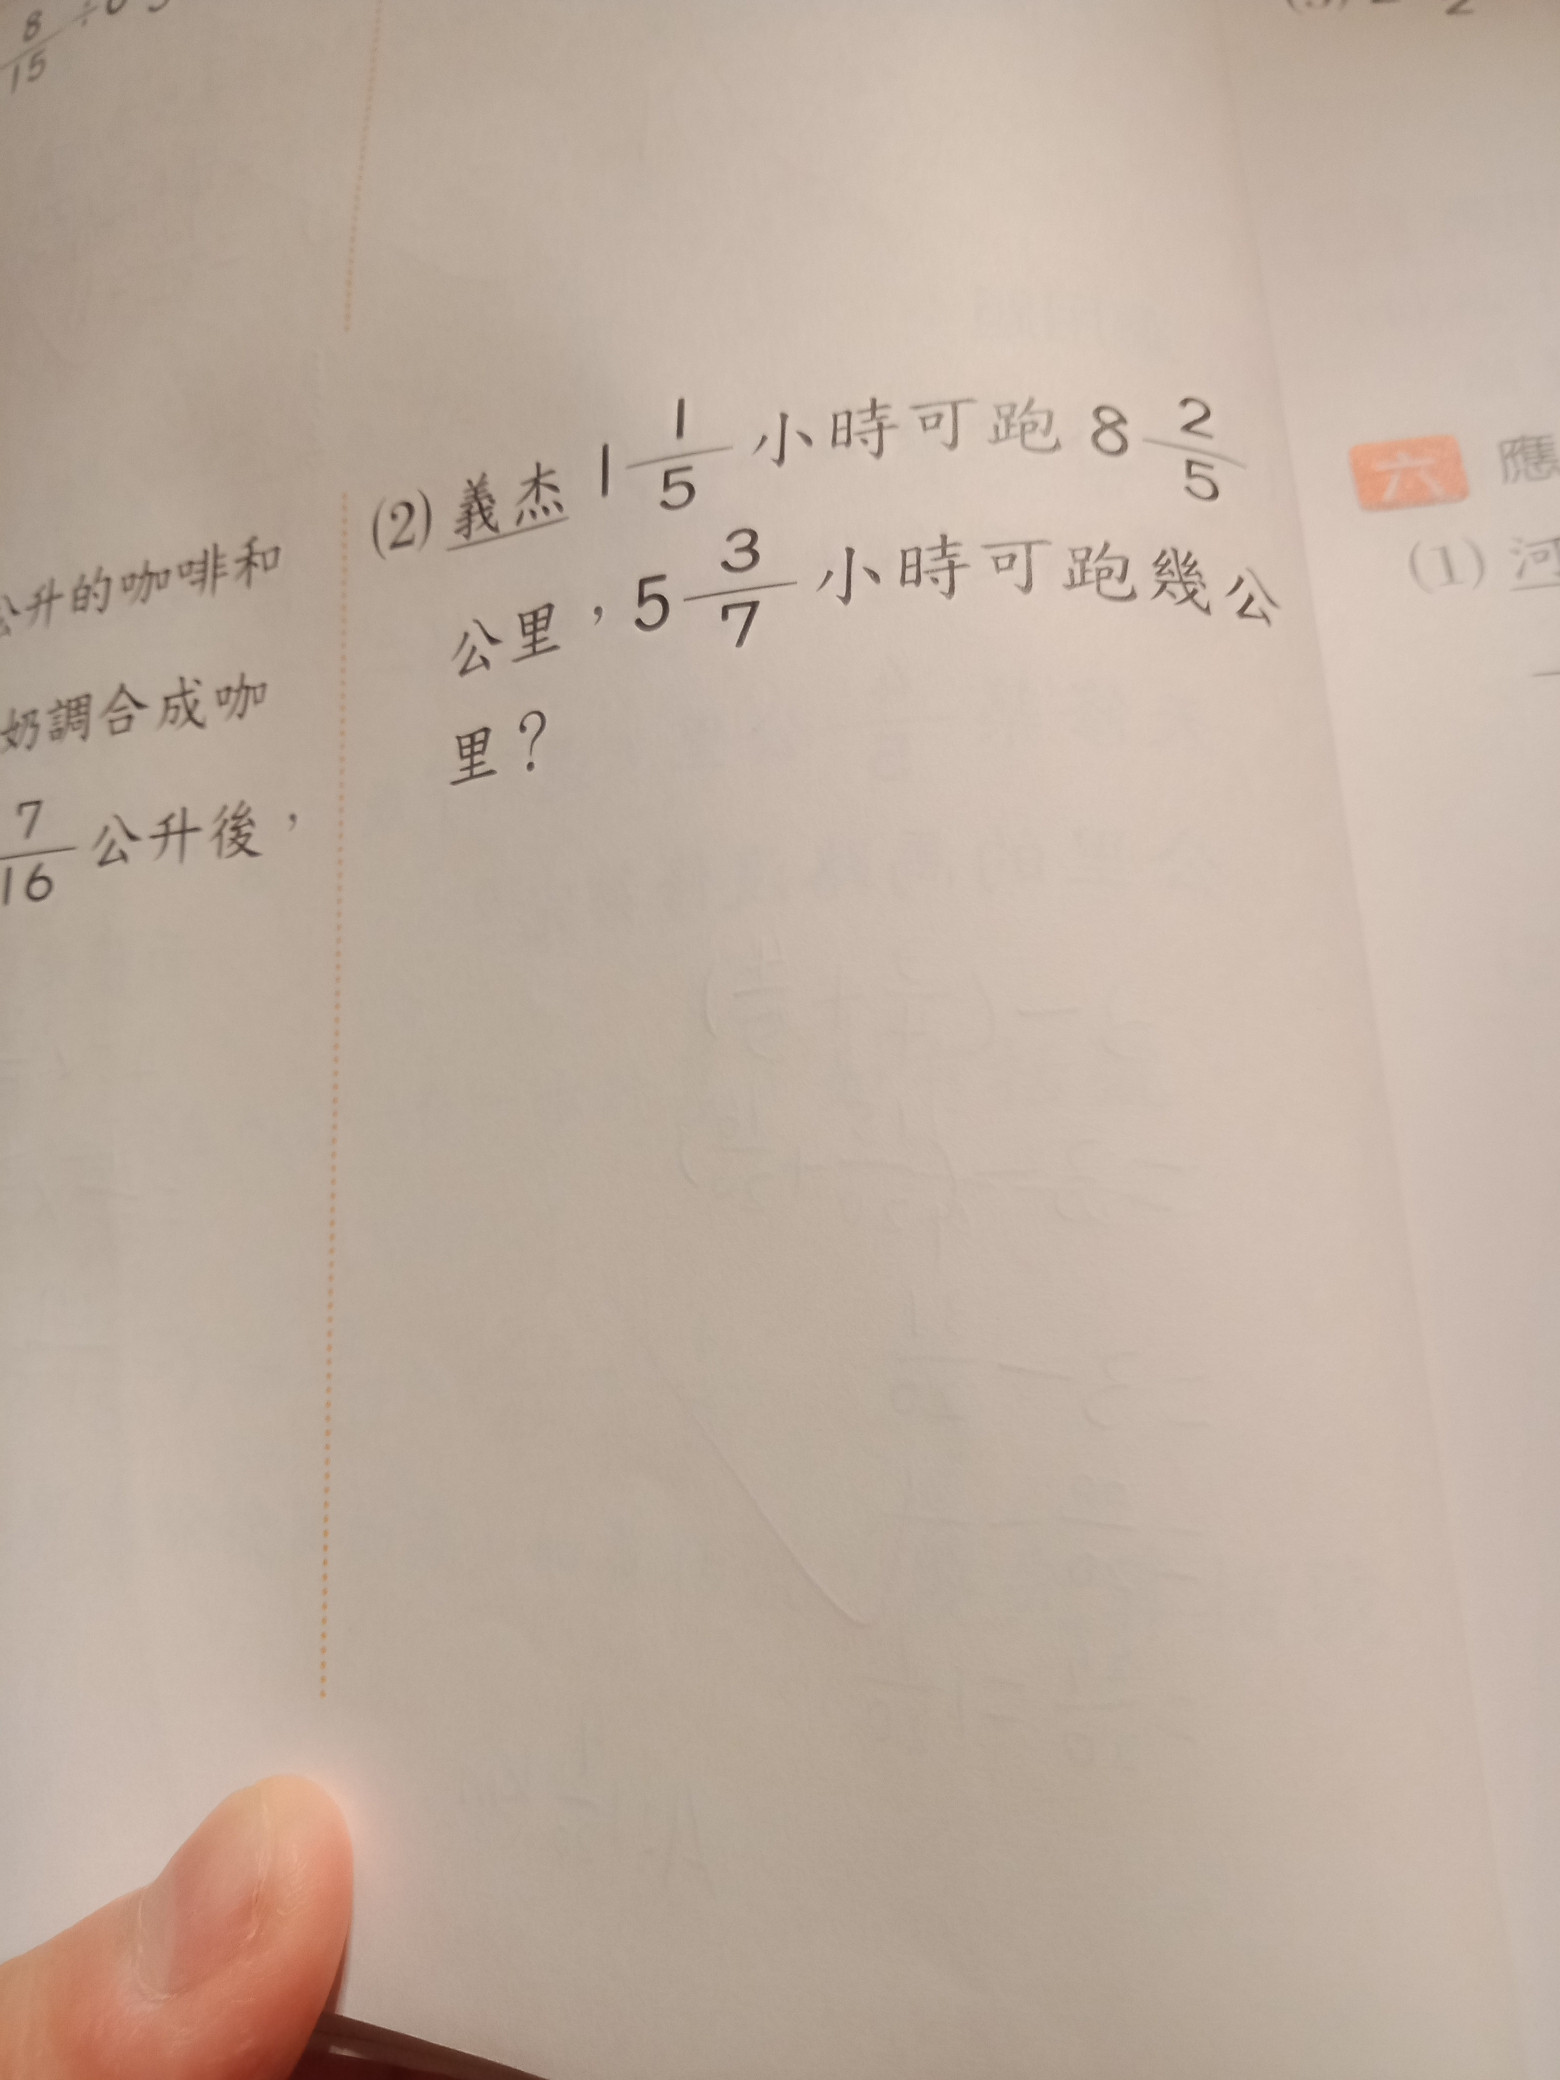 8/15 ÷
(2) 義杰 1 1/5 小時可跑 8 2/5
公里，5 3/7 小時可跑幾公
里？
公升的咖啡和
奶調合成咖
7/16 公升後，
六 應
(1) 河